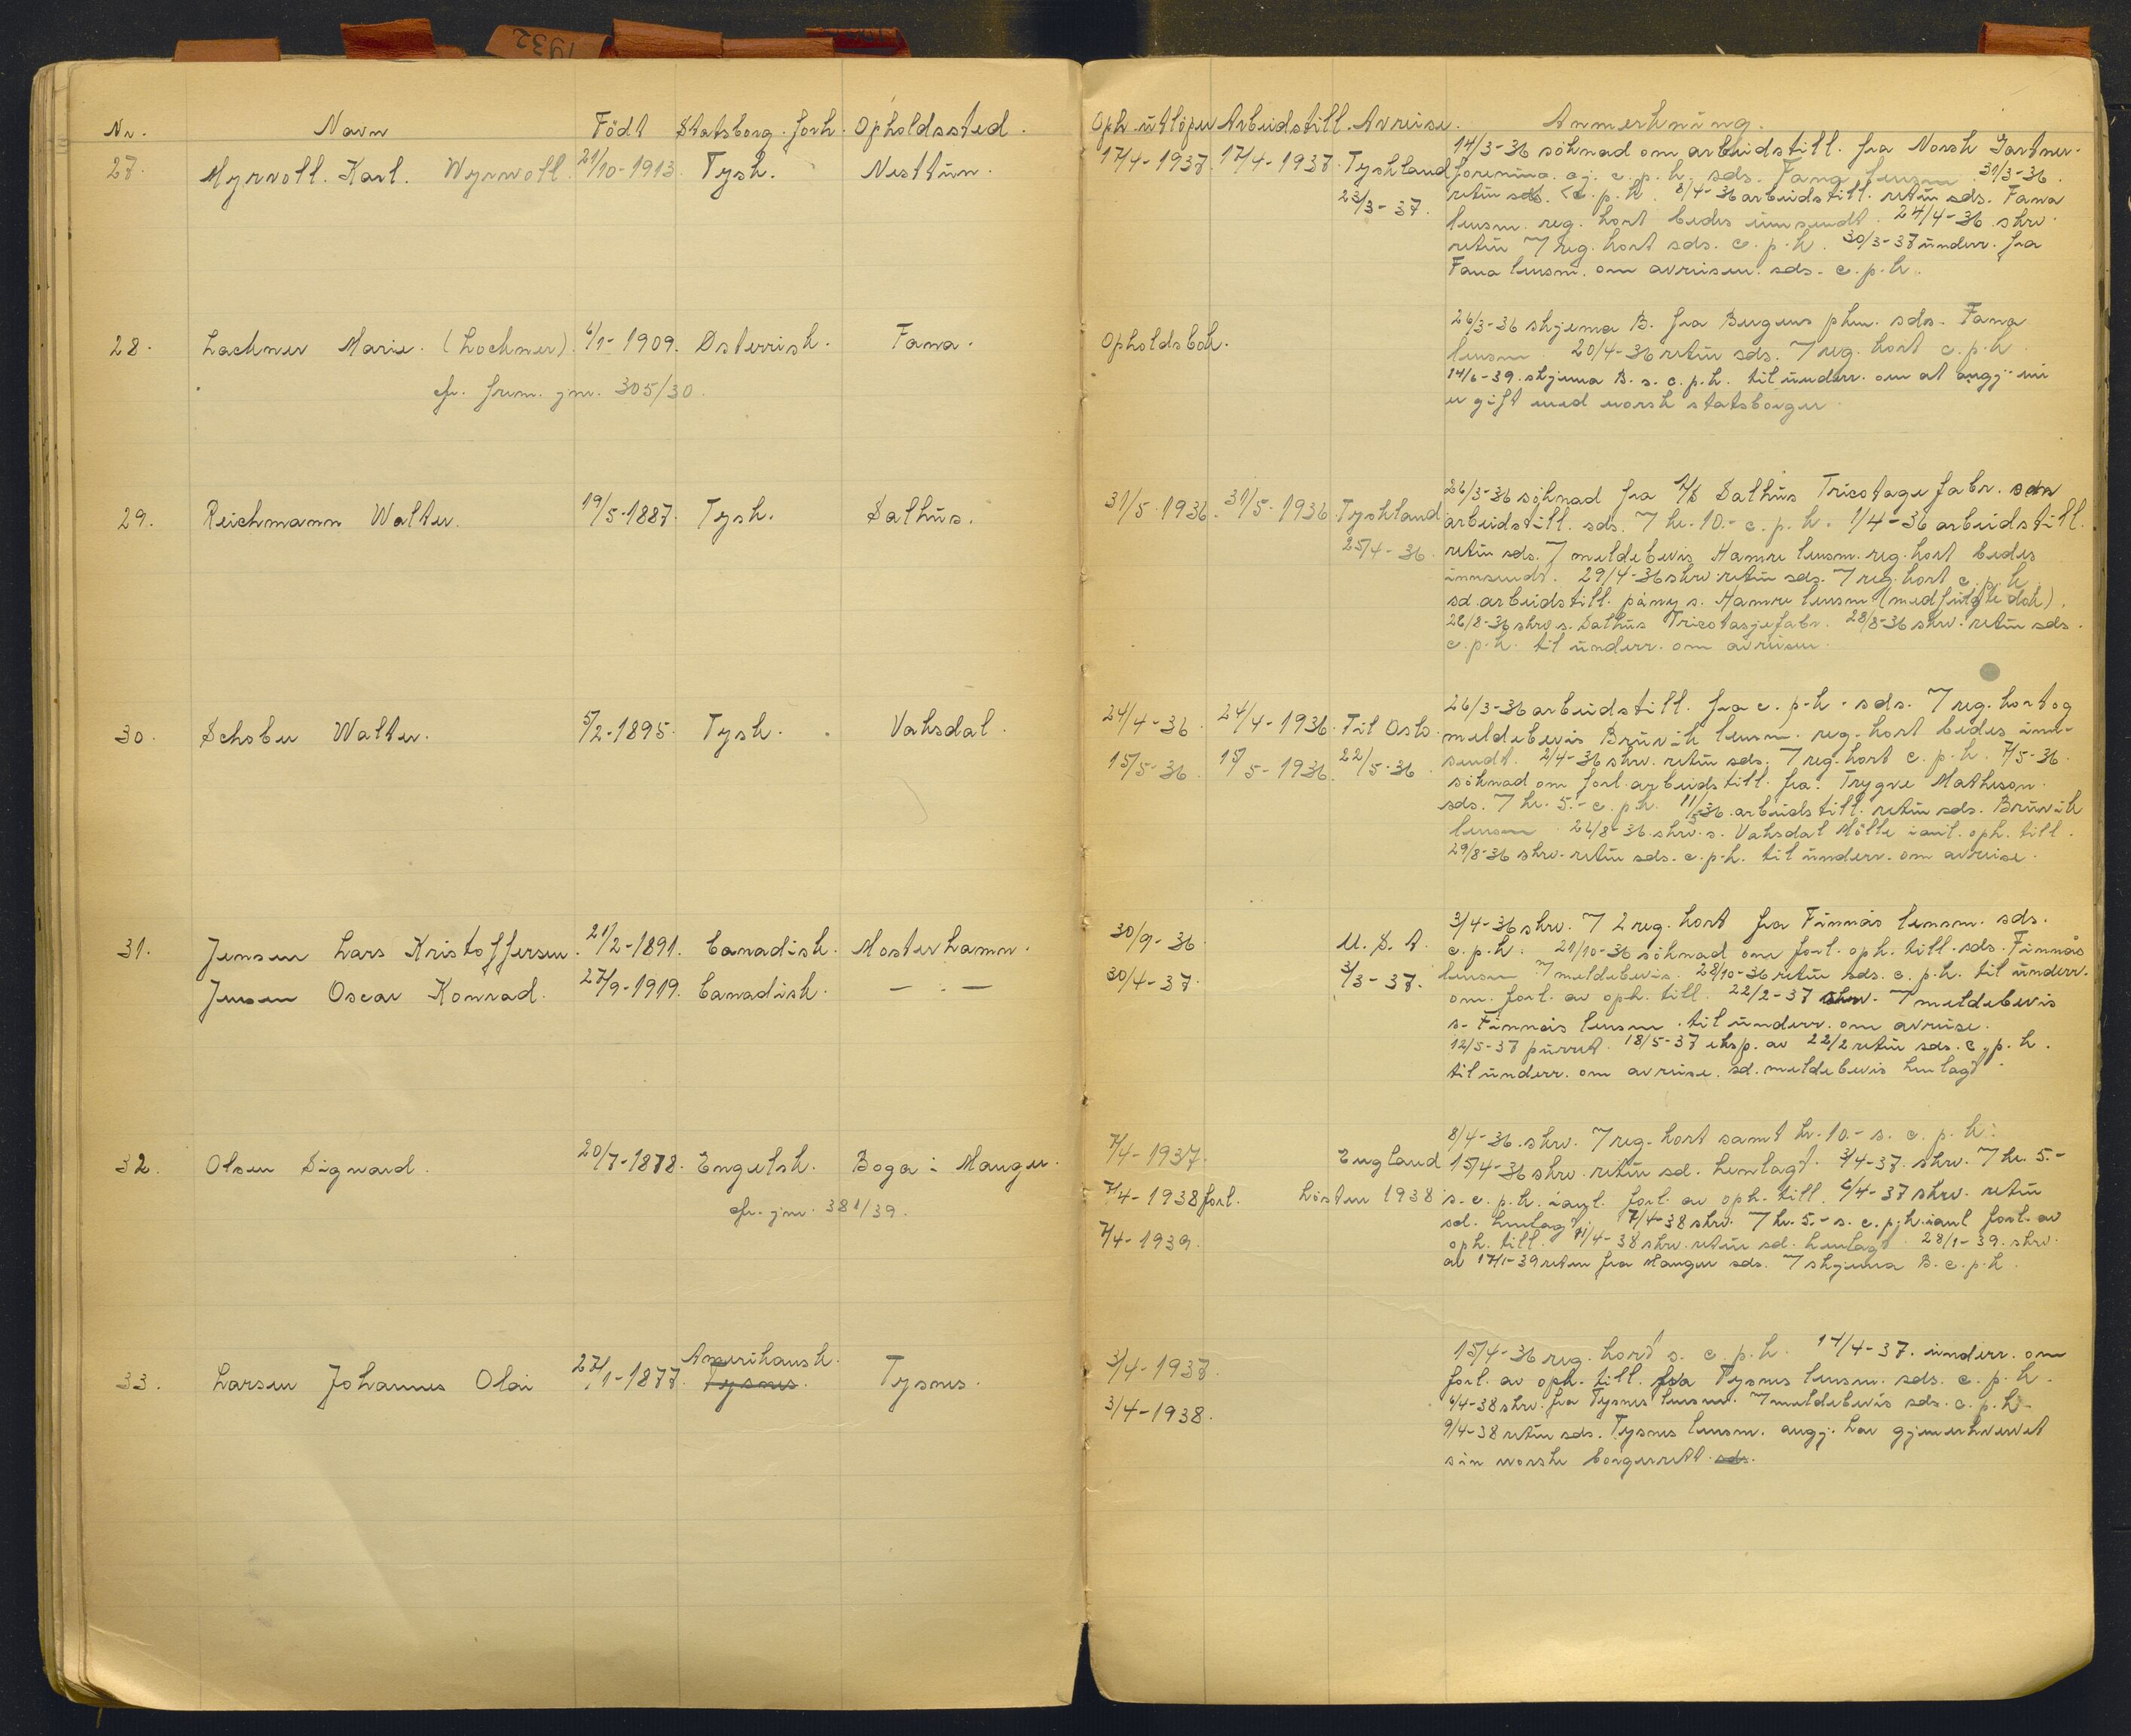 1932
Nr. Navn Født Statsborg. forh. Opholdssted.
27. Myrvoll. Karl. Wyrwoll. 21/10-1913. Tysk. Nesttün.
28. Lachner Marie. (Lochner). 6/1-1909. Østerrisk. Fana.
cfr. frem. jnr. 305/30.
29. Reichmann Walter. 19/5-1887. Tysk. Salhüs.
30. Schober Walter. 5/2-1895. Tysk. Vaksdal.
31. Jensen Lars Kristoffersen. 21/2-1891. Canadisk. Mosterhamn.
Jensen Oscar Konrad. 27/9-1919. Canadisk. — " —
32. Olsen Sigvard. 20/7-1878. Engelsk. Bøga i Manger.
cfr. jnr. 381/39.
Amerikansk.
33. Larsen Johannes Olai 27/1-1877. Tysnes. Tysnes.
Oph. ütløper Arbeidstill. Avreise. Anmerkning.
14/3-36 søknad om arbeidstill. fra Norsk Gartner-
17/4-1937. 17/4-1937. Tyskland forening. oj. c. p. k. sds. Fana lensm. 31/3-36.
23/3-37. retür sds. c. p. k. 8/4-36 arbeidstill. retür sds. Fana
lensm. reg. kort bedes innsendt. 24/4-36 skrv.
retür 7 reg. kort sds. c. p. k. 30/3-37 ünderr. fra
Fana lensm. om avreisen. sds. c. p. k.
26/3-36 skjema B. fra Bergens pkm. sds. Fana
Opholdsbok. lensm. 20/4-36 retür sds. 7 reg. kort c. p. k.
14/6-39. skjema B. s. c. p. k. til ünderr. om at angj.
er gift med norsk statsborger.
26/3-36 søknad fra A/S Salhüs Tricotage fabr.
31/5-1936. 31/5-1936 Tyskland arbeidstill. sds. 7 kr. 10.- c. p. k. 1/4-36 arbeidstill.
25/4-36. retür sds. 7 meldebevis Hamre lensm. reg. kort bedes
innsendt. 29/4-36 skrv. retür sds. 7 reg. kort c. p. k.
sd. arbeidstill. påny s. Hamre lensm (medfülgte dok).
26/8-36 skrv s. Salhüs Tricotasjefabr. 28/8-36 skrv. retür sds.
c. p. k. til ünderr. om avreisen.
26/3-36 arbeidstill. fra c. p. k. sds. 7 reg. kort og
24/4-36. 24/4-1936. Til Oslo. meldebevis Brüvik lensm. reg. kort bedes inn-
15/5-36. 15/5-1936. 22/5-36. sendt. 2/4-36 skrv. retür sds. 7 reg. kort c. p. k. 7/5-36.
søknad om forl. arbeidstill. fra: Trygve Matheson.
sds. 7 kr. 5.- c. p. k. 11/5-36. arbeidstill. retür sds. Brüvik
lensm. 26/8-36. skrv. s. Vaksdal Mølle oph. till.
29/8-36 skrv. retür sds. c. p. k. til ünderr. om avreise.
3/4-36 skrv. 7 2 reg. kort fra Finnås lensm. sds.
30/9-36. U. S. A. c. p. k. 21/10-36 søknad om forl. oph. till. sds. Finnås
30/4-37. 3/3-37. lensm 7 meldebevis. 28/10-36 retür sds. c. p. k. til ünderr.
om. forl. av oph. till. 22/2-37 skrv. 7 meldebevis
s. Finnås lensm. til ünderr. om avreise.
12/5-37 pürret. 18/5-37 eksp. av 22/2 retür sds. c. p. k.
til ünderr. om avreise. sd. meldebevis henlagt.
8/4-36. skrv. 7 reg. kort samt kr. 10.- s. c. p. k.
7/4-1937. England 15/4-36 skrv. retür sd. henlagt. 3/4-37. skrv. 7 kr. 5.-
7/4-1938 forl. høsten 1938 s. c. p. k. forl. av oph. till. 6/4-37 skrv. retür
sd. henlagt. 7/4-38 skrv. 7 kr. 5.- s. c. p. k. forl. av
7/4-1939. oph. till. 11/4-38 skrv. retür sd. henlagt. 28/1-39. skrv.
av 17/1-39 retur fra Manger sds. 7 skjema B. c. p. k.
15/4-36 reg. kort s. c. p. k. 14/4-37. ünderr. om
3/4-1937. forl. av oph. till. fra Tysnes lensm. sds. c. p. k.
6/4-38 skrv. fra Tysnes lensm. 7 meldebevis sds. c. p. k.
3/4-1938. 9/4-38 retür sds. Tysnes lensm. angj. har gjenerhvervet
sin norske borgerrett. sds.